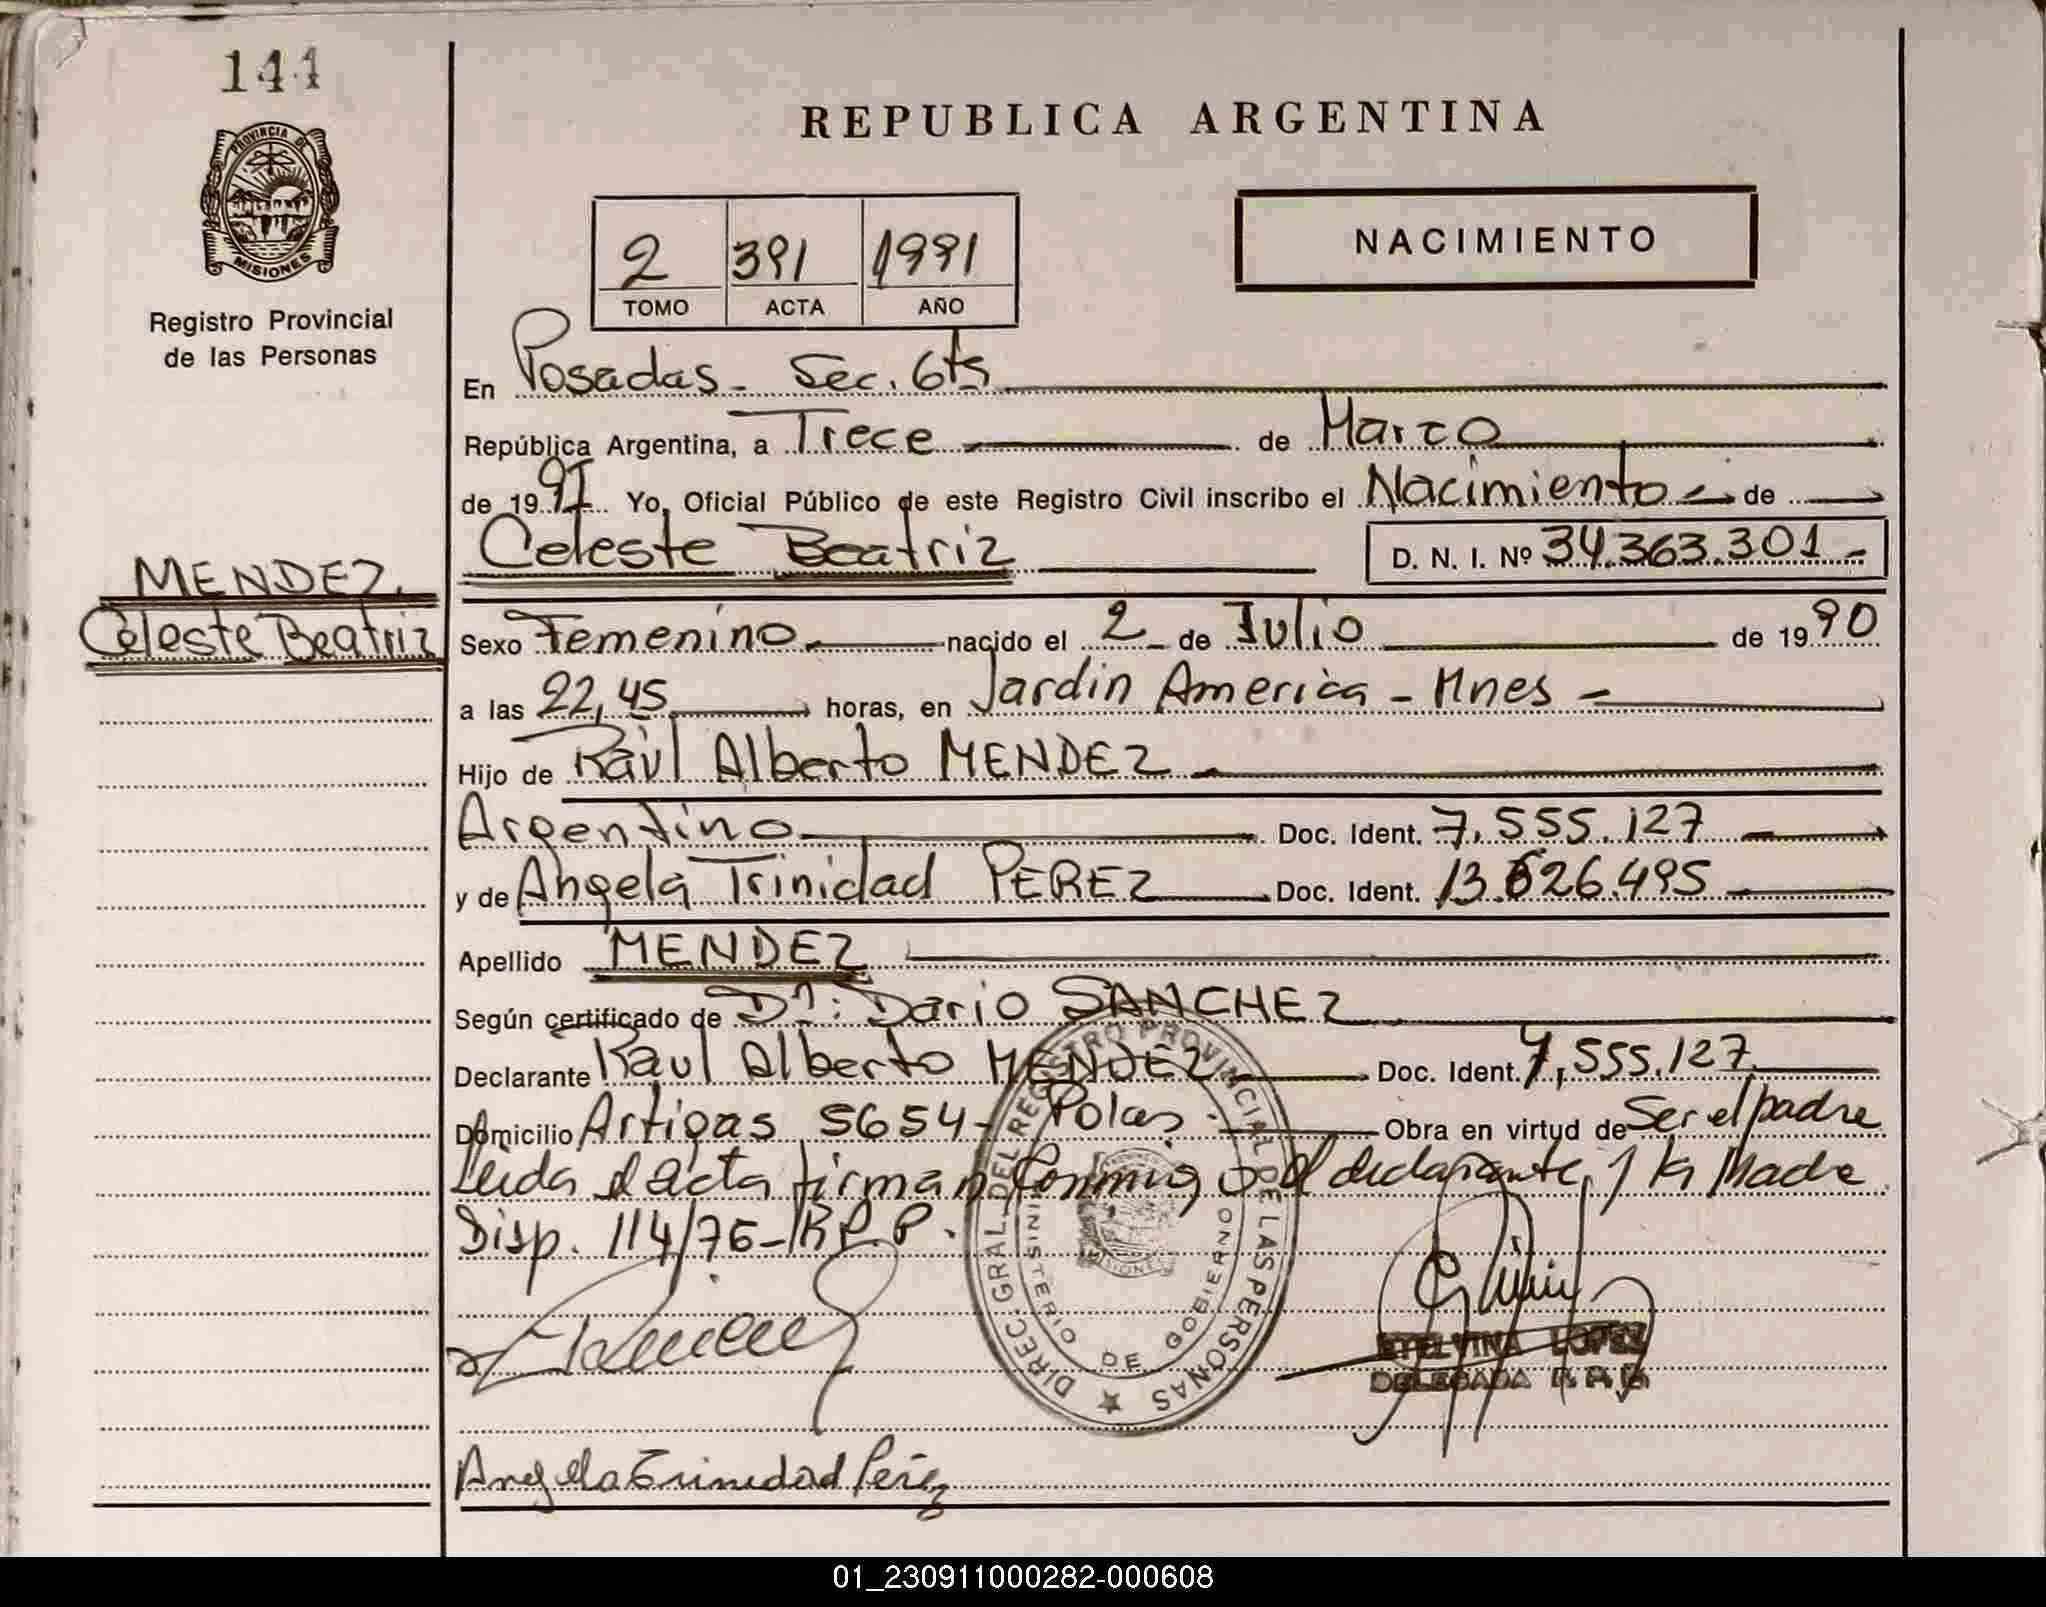 144
PROVINCIA DE
MISIONES
Registro Provincial
de las Personas
MENDEZ,
Celeste Beatriz
REPUBLICA ARGENTINA
2 391 1991
TOMO ACTA AÑO
NACIMIENTO
En Posadas - Sec. 6ta
República Argentina, a Trece de Marzo
de 1991 Yo, Oficial Público de este Registro Civil inscribo el Nacimiento de
Celeste Beatriz D. N. I. Nº 34.363.301 -
Sexo Femenino nacido el 2 de Julio de 1990
a las 22,45 horas, en Jardin America - Mnes -
Hijo de Raúl Alberto MENDEZ
Argentino Doc. Ident. 7.555.127
y de Angela Trinidad PEREZ Doc. Ident. 13.626.495
Apellido MENDEZ
Según certificado de Dr: Dario SANCHEZ
Declarante Raul Alberto MENDEZ Doc. Ident. 7.555.127
Domicilio Artigas 5654 - Pdas. Obra en virtud de Ser el padre
Leida el acta firman conmigo el declarante y la Madre
Disp. 114/76 - R.P.P.
DIREC. GRAL. DEL REGISTRO PROVINCIAL DE LAS PERSONAS
MINISTERIO DE GOBIERNO
MISIONES
ETELVINA LOPEZ
DELEGADA
Angela Trinidad Pérez
01_230911000282-000608